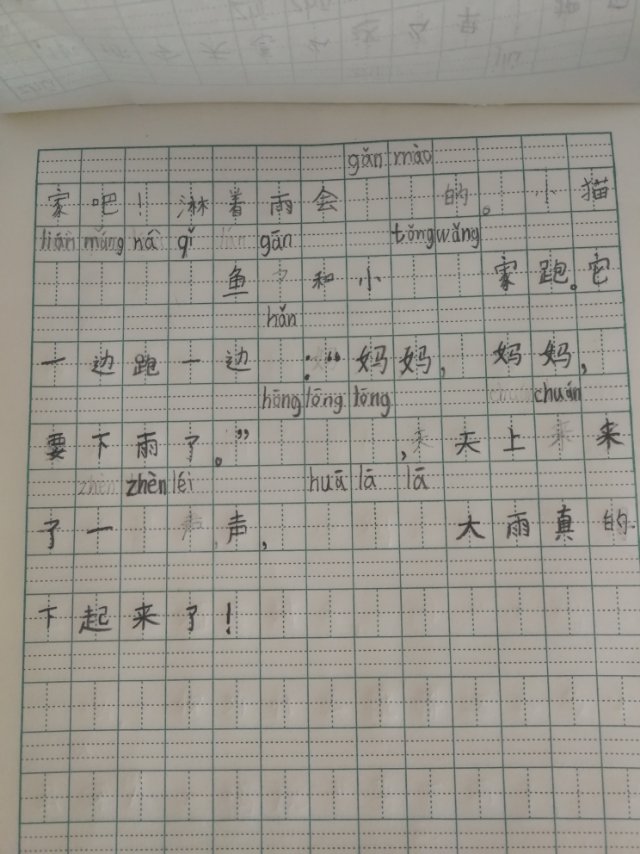 gǎn mào
家吧！淋着雨会 的。小猫
lián máng ná qǐ gān
tōng wǎng
鱼 和小 家跑。它
hǎn
一边跑一边 ：“妈妈，妈妈，
hōng lōng lōng chuán
要下雨了。” ，天上 来
zhèn léi huā lā lā
了一 声， 大雨真的
下起来了！